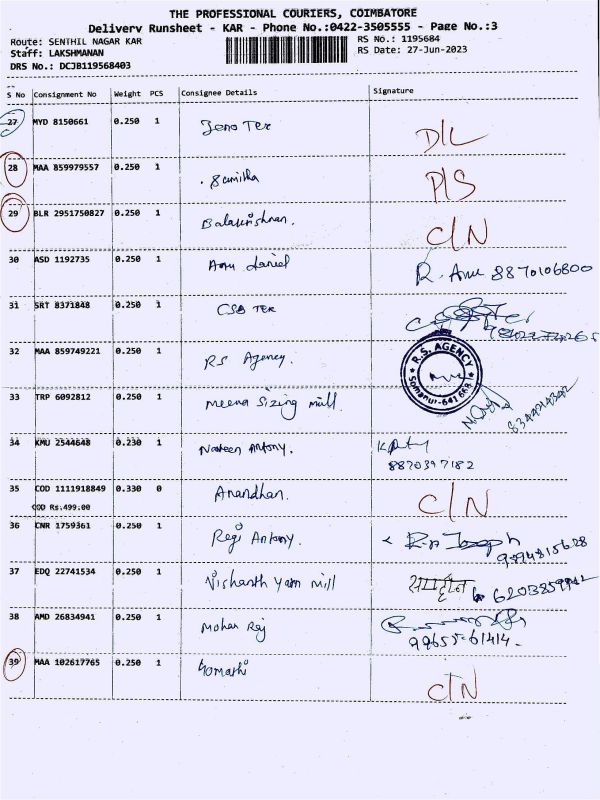 THE PROFESSIONAL COURIERS, COIMBATORE
Delivery Runsheet - KAR - Phone No.:0422-3505555 - Page No.:3
Route: SENTHIL NAGAR KAR
RS No.: 1195684
Staff: LAKSHMANAN
RS Date: 27-Jun-2023
DRS No.: DCJB119568403
S No Consignment No Weight PCS Consignee Details Signature
27 MYD 8150661 0.250 1 Jeno Tex D/L
28 MAA 859979557 0.250 1 Sunitha P/S
29 BLR 2951750827 0.250 1 Balakrishnan. C/N
30 ASD 1192735 0.250 1 Anu daniel R. Anu 8870106800
31 SRT 8371848 0.250 1 CSB Tex
32 MAA 859749221 0.250 1 RS Agency. R.S. AGENCY Somanur-641 668
33 TRP 6092812 0.250 1 Meena Sizing mill.
34 KMU 2544648 0.230 1 Naveen Antony. 8870397182
35 COD 1111918849 0.330 0 Anandhan. C/N
COD Rs.499.00
36 CNR 1759361 0.250 1 Regi Antony.
37 EDQ 22741534 0.250 1 Vishanth yarn mill
38 AMD 26834941 0.250 1 Mohan Raj 99655-61414-
39 MAA 102617765 0.250 1 Gomathi C/N